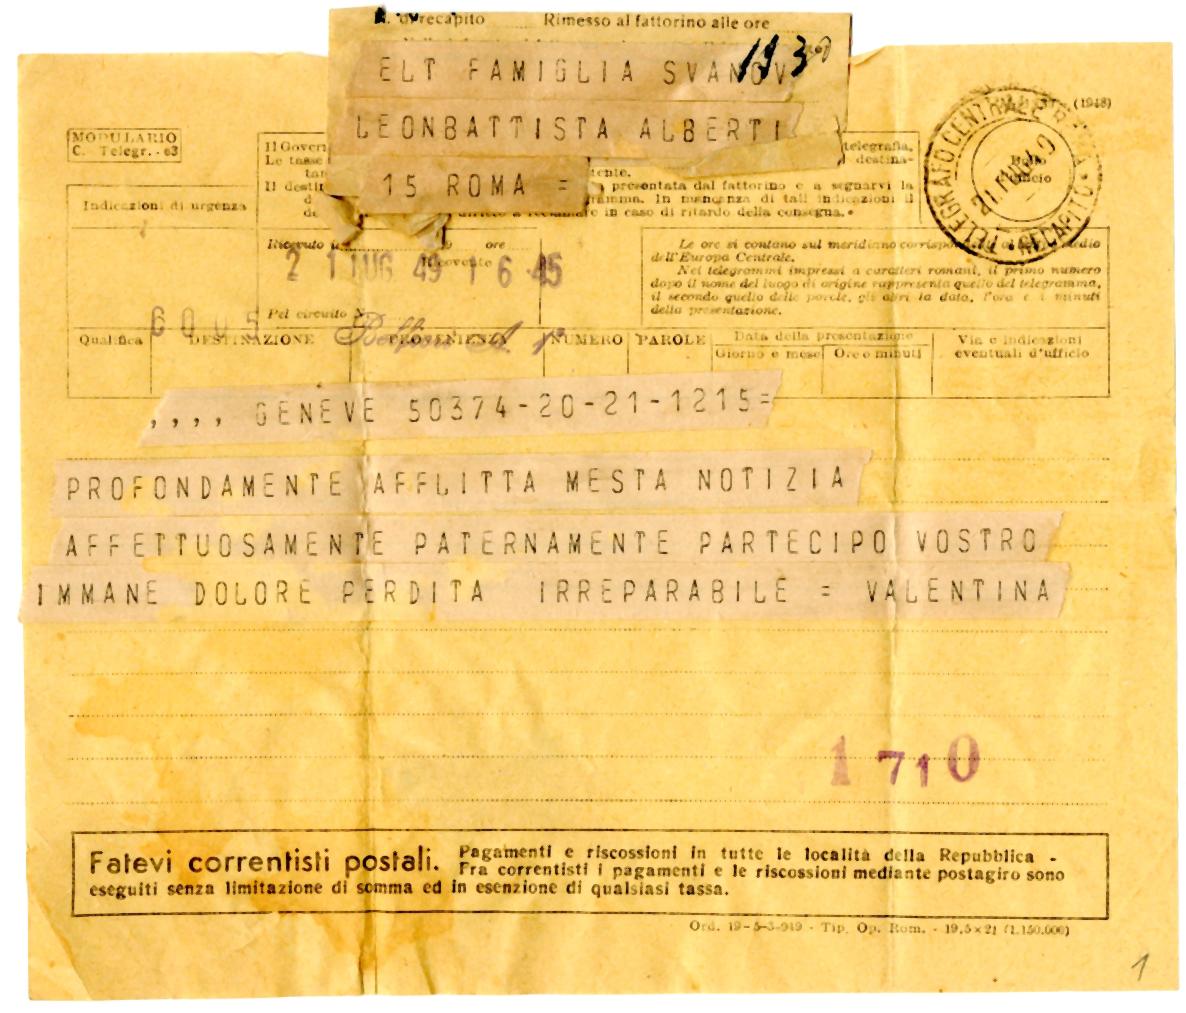 di recapito Rimesso al fattorino alle ore
1930
ELT FAMIGLIA SVANOV
LEONBATTISTA ALBERTI
15 ROMA =
MODULARIO
C. Telegr. - 63
(1948)
TELEGRAFO CENTRALE RECAPITO
Bollo
d'ufficio
Indicazioni di urgenza
Il Govern telegrafia.
Le tasse destina-
Il destin presentata dal fattorino e a segnarvi la
In mancanza di tali indicazioni il
in caso di ritardo della consegna.
Ricevuto il 19 ore
21 LUG 49 16.45
Ricevente
Pel circuito N.
6005
Le ore si contano sul meridiano corrispondente al medio
dell'Europa Centrale.
Nei telegrammi impressi a caratteri romani, il primo numero
dopo il nome del luogo di origine rappresenta quello del telegramma,
il secondo quello delle parole, gli altri la data, l'ora e i minuti
della presentazione.
Qualifica DESTINAZIONE PROVENIENZA NUMERO PAROLE Data della presentazione Via e indicazioni
Giorno e mese Ore e minuti eventuali d'ufficio
,,,, GENEVE 50374-20-21-1215=
PROFONDAMENTE AFFLITTA MESTA NOTIZIA
AFFETTUOSAMENTE PATERNAMENTE PARTECIPO VOSTRO
IMMANE DOLORE PERDITA IRREPARABILE = VALENTINA
1710
Fatevi correntisti postali. Pagamenti e riscossioni in tutte le località della Repubblica -
Fra correntisti i pagamenti e le riscossioni mediante postagiro sono
eseguiti senza limitazione di somma ed in esenzione di qualsiasi tassa.
Ord. 19-5-3-949 - Tip. Op. Rom. - 19,5×21 (1.150.000)
1